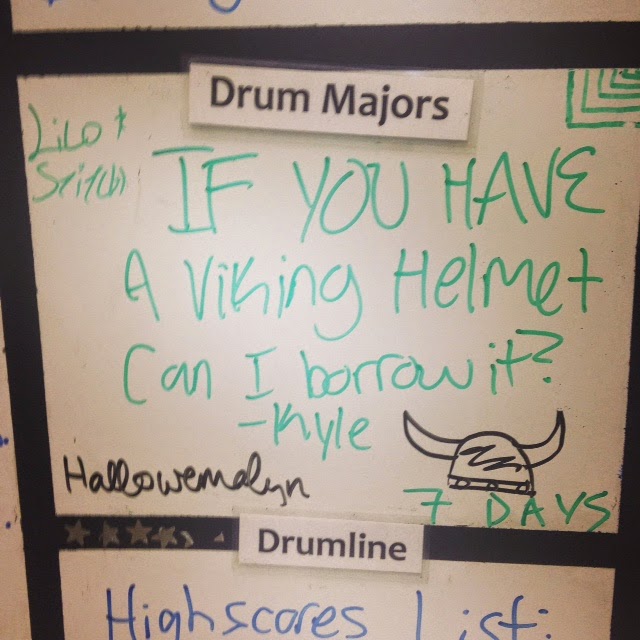 Drum Majors
Lilo +
Stitch
IF YOU HAVE
A Viking Helmet
Can I borrow it?
-Kyle
7 DAYS
Drumline
Highscores List: